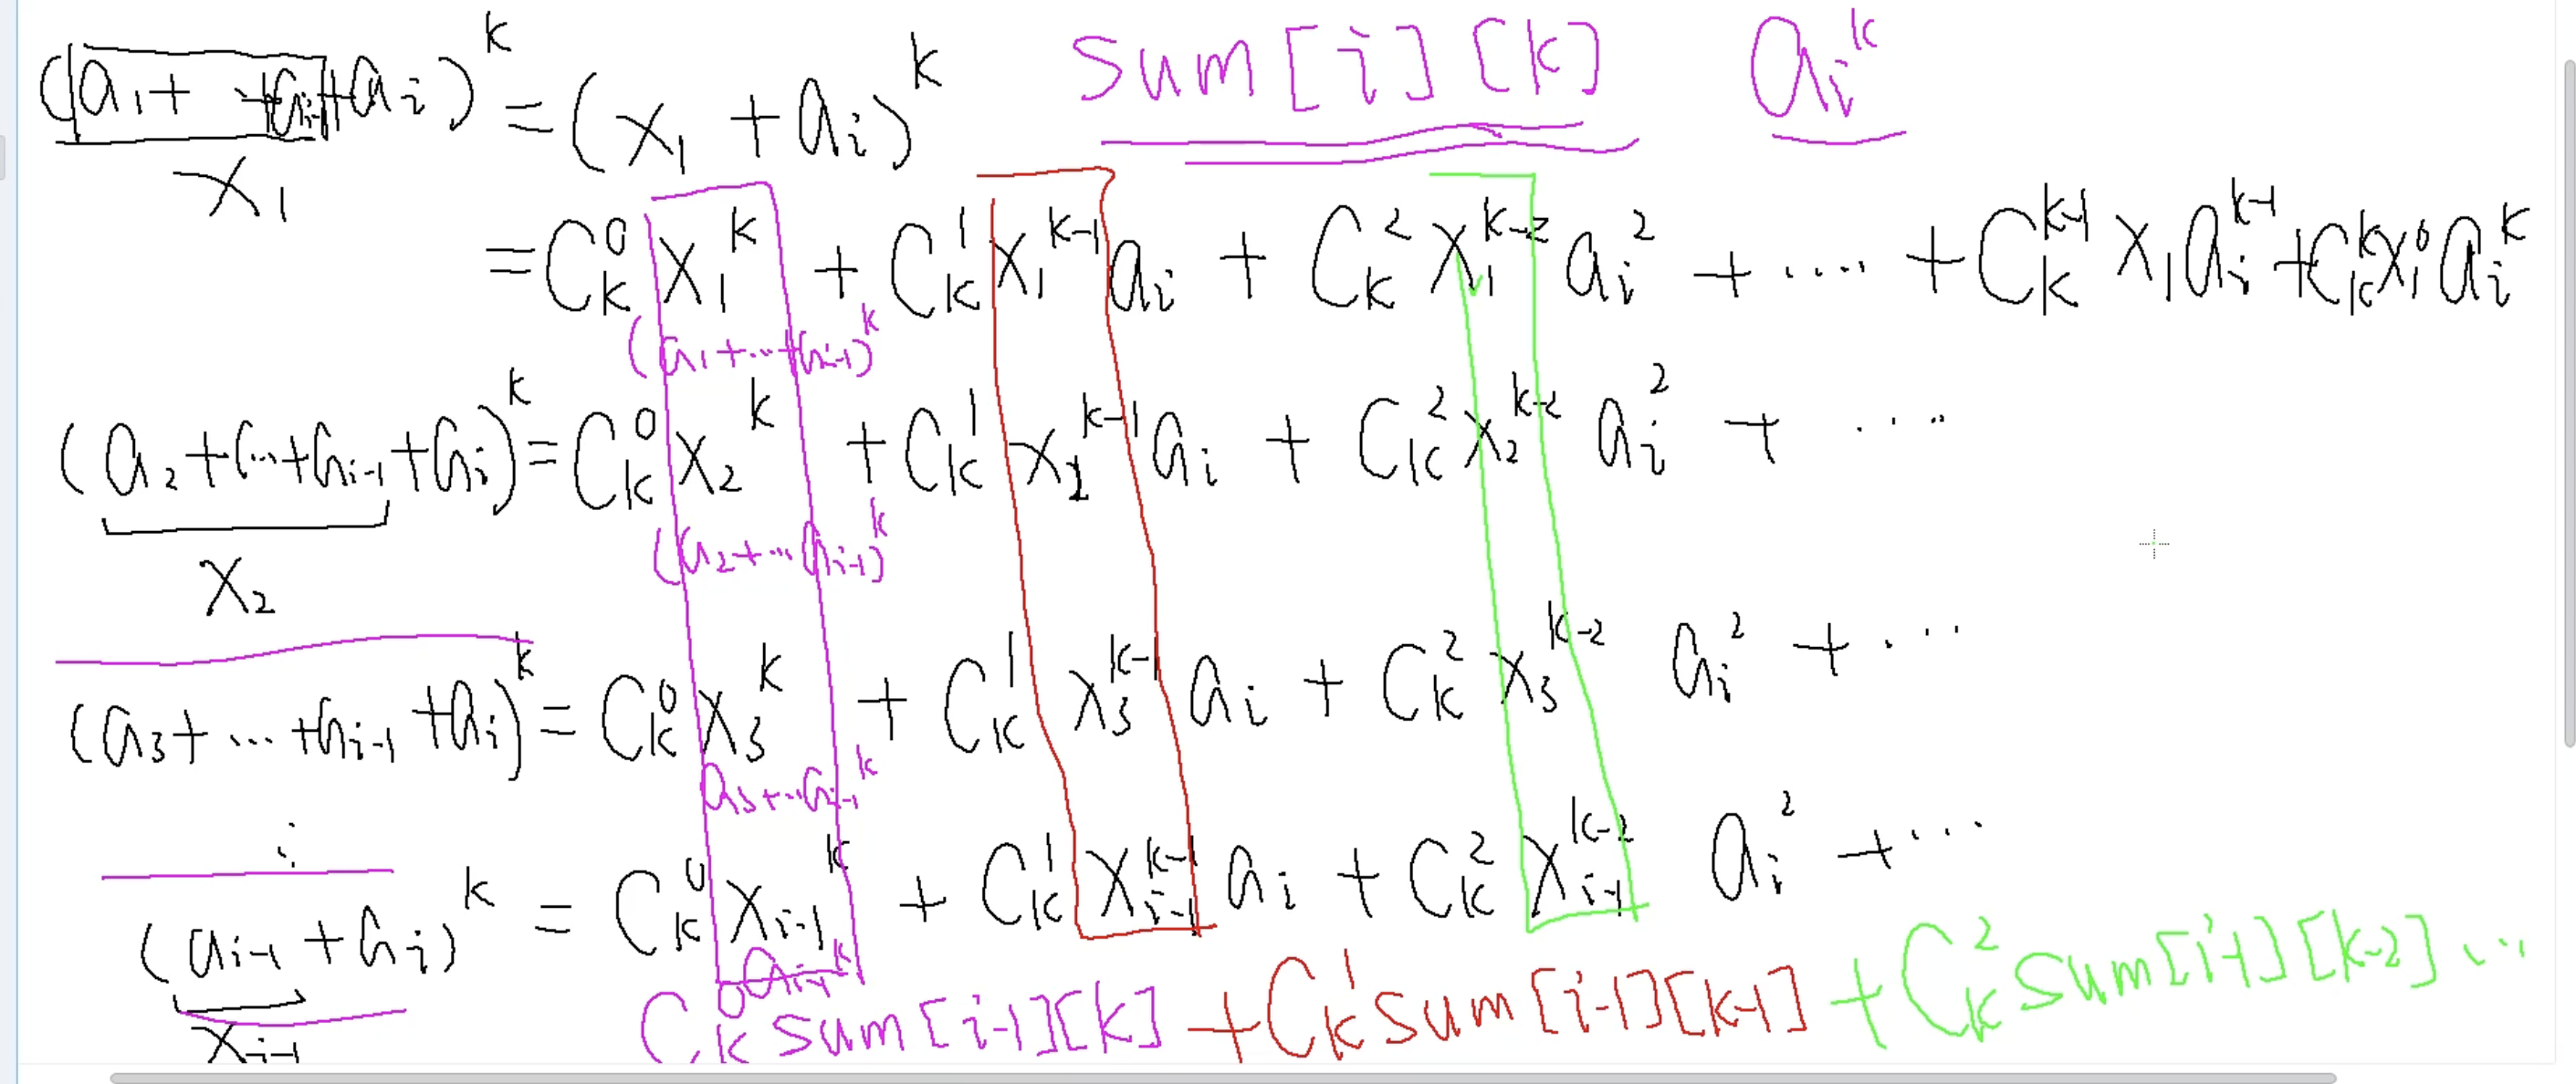 (a₁+ ··+aᵢ₋₁+aᵢ)ᵏ = (x₁ + aᵢ)ᵏ
sum[i][k] aᵢᵏ
x₁
= Cₖ⁰ x₁ᵏ + Cₖ¹ x₁ᵏ⁻¹ aᵢ + Cₖ² x₁ᵏ⁻² aᵢ² + ····· + Cₖᵏ⁻¹ x₁ aᵢᵏ⁻¹ + Cₖᵏ x₁⁰ aᵢᵏ
(a₁+···+aᵢ₋₁)ᵏ
(a₂+···+aᵢ₋₁+aᵢ)ᵏ = Cₖ⁰ x₂ᵏ + Cₖ¹ x₂ᵏ⁻¹ aᵢ + Cₖ² x₂ᵏ⁻² aᵢ² + ·····
(a₂+···aᵢ₋₁)ᵏ
x₂
(a₃+ ··· +aᵢ₋₁ +aᵢ)ᵏ = Cₖ⁰ x₃ᵏ + Cₖ¹ x₃ᵏ⁻¹ aᵢ + Cₖ² x₃ᵏ⁻² aᵢ² + ····
a₃+···aᵢ₋₁ᵏ
⋮
(aᵢ₋₁ + aᵢ)ᵏ = Cₖ⁰ xᵢ₋₁ᵏ + Cₖ¹ xᵢ₋₁ᵏ⁻¹ aᵢ + Cₖ² xᵢ₋₁ᵏ⁻² aᵢ² + ····
aᵢ₋₁ᵏ
xᵢ₋₁
Cₖ⁰ sum[i-1][k] + Cₖ¹ sum[i-1][k-1] + Cₖ² sum[i-1][k-2] ···